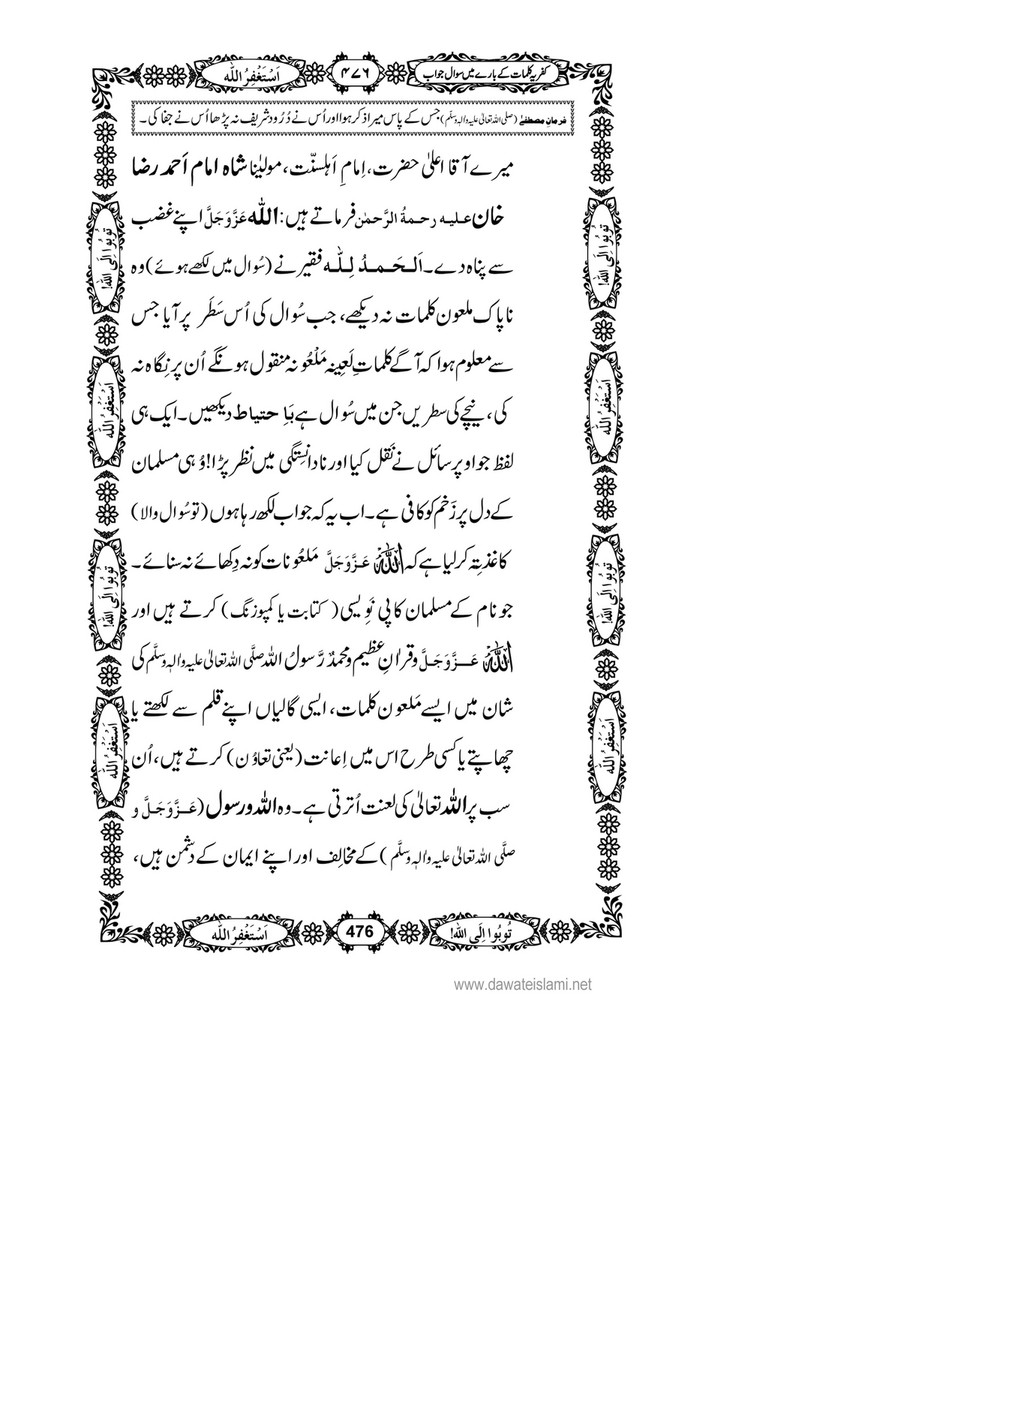 کفریہ کلمات کے بارے میں سوال جواب
۴۷۶
اَسْتَغْفِرُ اللّٰه
فرمانِ مصطفٰے (صلی اللہ تعالیٰ علیہ والہٖ وسلَّم) جس کے پاس میرا ذکر ہوا اور اُس نے دُرُود شریف نہ پڑھا اُس نے جفا کی۔
میرے آقا اعلیٰ حضرت، اِمامِ اَہلسنّت، مولیٰنا شاہ امام اَحمد رضا
خان علیہ رحمۃُ الرَّحمٰن فرماتے ہیں: اللّٰہ عَزَّوَجَلَّ اپنے غضب
سے پناہ دے۔ اَلحَمدُ لِلّٰہ فقیر نے (سُوال میں لکھے ہوئے) وہ
ناپاک ملعون کلمات نہ دیکھے، جب سُوال کی اُس سَطَر پر آیا جس
سے معلوم ہوا کہ آگے کلماتِ لَعِینہ مَلْعُونہ منقول ہونگے اُن پر نِگاہ نہ
کی، نیچے کی سطریں جن میں سُوال ہے بَاِحتیاط دیکھیں۔ ایک ہی
لفظ جو اوپر سائل نے نَقْل کیا اور نادانِستگی میں نظر پڑا! وُہی مسلمان
کے دل پر زَخم کو کافی ہے۔ اب یہ کہ جواب لکھ رہا ہوں (تو سُوال والا)
کاغذ تِہ کر لیا ہے کہ اللہ عَزَّوَجَلَّ مَلعُونات کو نہ دِکھائے نہ سنائے۔
جو نام کے مسلمان کاپی نَوِیسی (کتابت یا کمپوزنگ) کرتے ہیں اور
اللہ عَزَّوَجَلَّ و قراٰنِ عظیم و محمدٌ رَّسولُ اللہ صلَّی اللہ تعالیٰ علیہ واٰلہٖ وسلَّم کی
شان میں ایسے مَلعون کلمات، ایسی گالیاں اپنے قلم سے لکھتے یا
چھاپتے یا کسی طرح اس میں اِعانت (یعنی تعاوُن) کرتے ہیں، اُن
سب پر اللہ تعالیٰ کی لعنت اُترتی ہے۔ وہ اللہ و رسول (عَزَّوَجَلَّ و
صلَّی اللہ تعالیٰ علیہ واٰلہٖ وسلَّم) کے مخالِف اور اپنے ایمان کے دشمن ہیں،
تُوبُوا اِلَی اللّٰه!
اَسْتَغْفِرُ اللّٰه
تُوبُوا اِلَی اللّٰه!
اَسْتَغْفِرُ اللّٰه
تُوبُوا اِلَی اللّٰه!
اَسْتَغْفِرُ اللّٰه
تُوبُوا اِلَی اللّٰه!
اَسْتَغْفِرُ اللّٰه
تُوبُوا اِلَی اللّٰه!
476
اَسْتَغْفِرُ اللّٰه
www.dawateislami.net